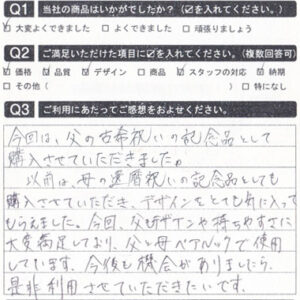 Q1 当社の商品はいかがでしたか?(☑を入れてください。)
□ 大変よくできました □ よくできました □ 頑張りましょう
Q2 ご満足いただけた項目に☑を入れてください。(複数回答可)
☑ 価格 ☑ 品質 ☑ デザイン □ 商品 ☑ スタッフの対応 ☑ 納期
□ その他( ) □ 特になし
Q3 ご利用にあたってご感想をおよせください。
今回は、父の古希祝いの記念品として
購入させていただきました。
以前は、母の還暦祝いの記念品としても
購入させていただき、デザインをとても気に入って
もらえました。今回、父もデザインや持ちやすさに
大変満足しており、父と母ペアルックで使用
しています。今後も機会がありましたら、
是非利用させていただきたいです。